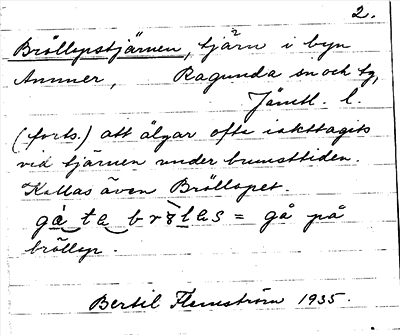 2.
Bröllopstjärnen, tjärn i byn
Ammer, Ragunda sn och tg,
Jämtl. l.
(forts.) att älgar ofta iakttagits
vid tjärnen under brunsttiden.
Kallas även Bröllopet.
= gå på
bröllop.
Bertil Flemström 1935.